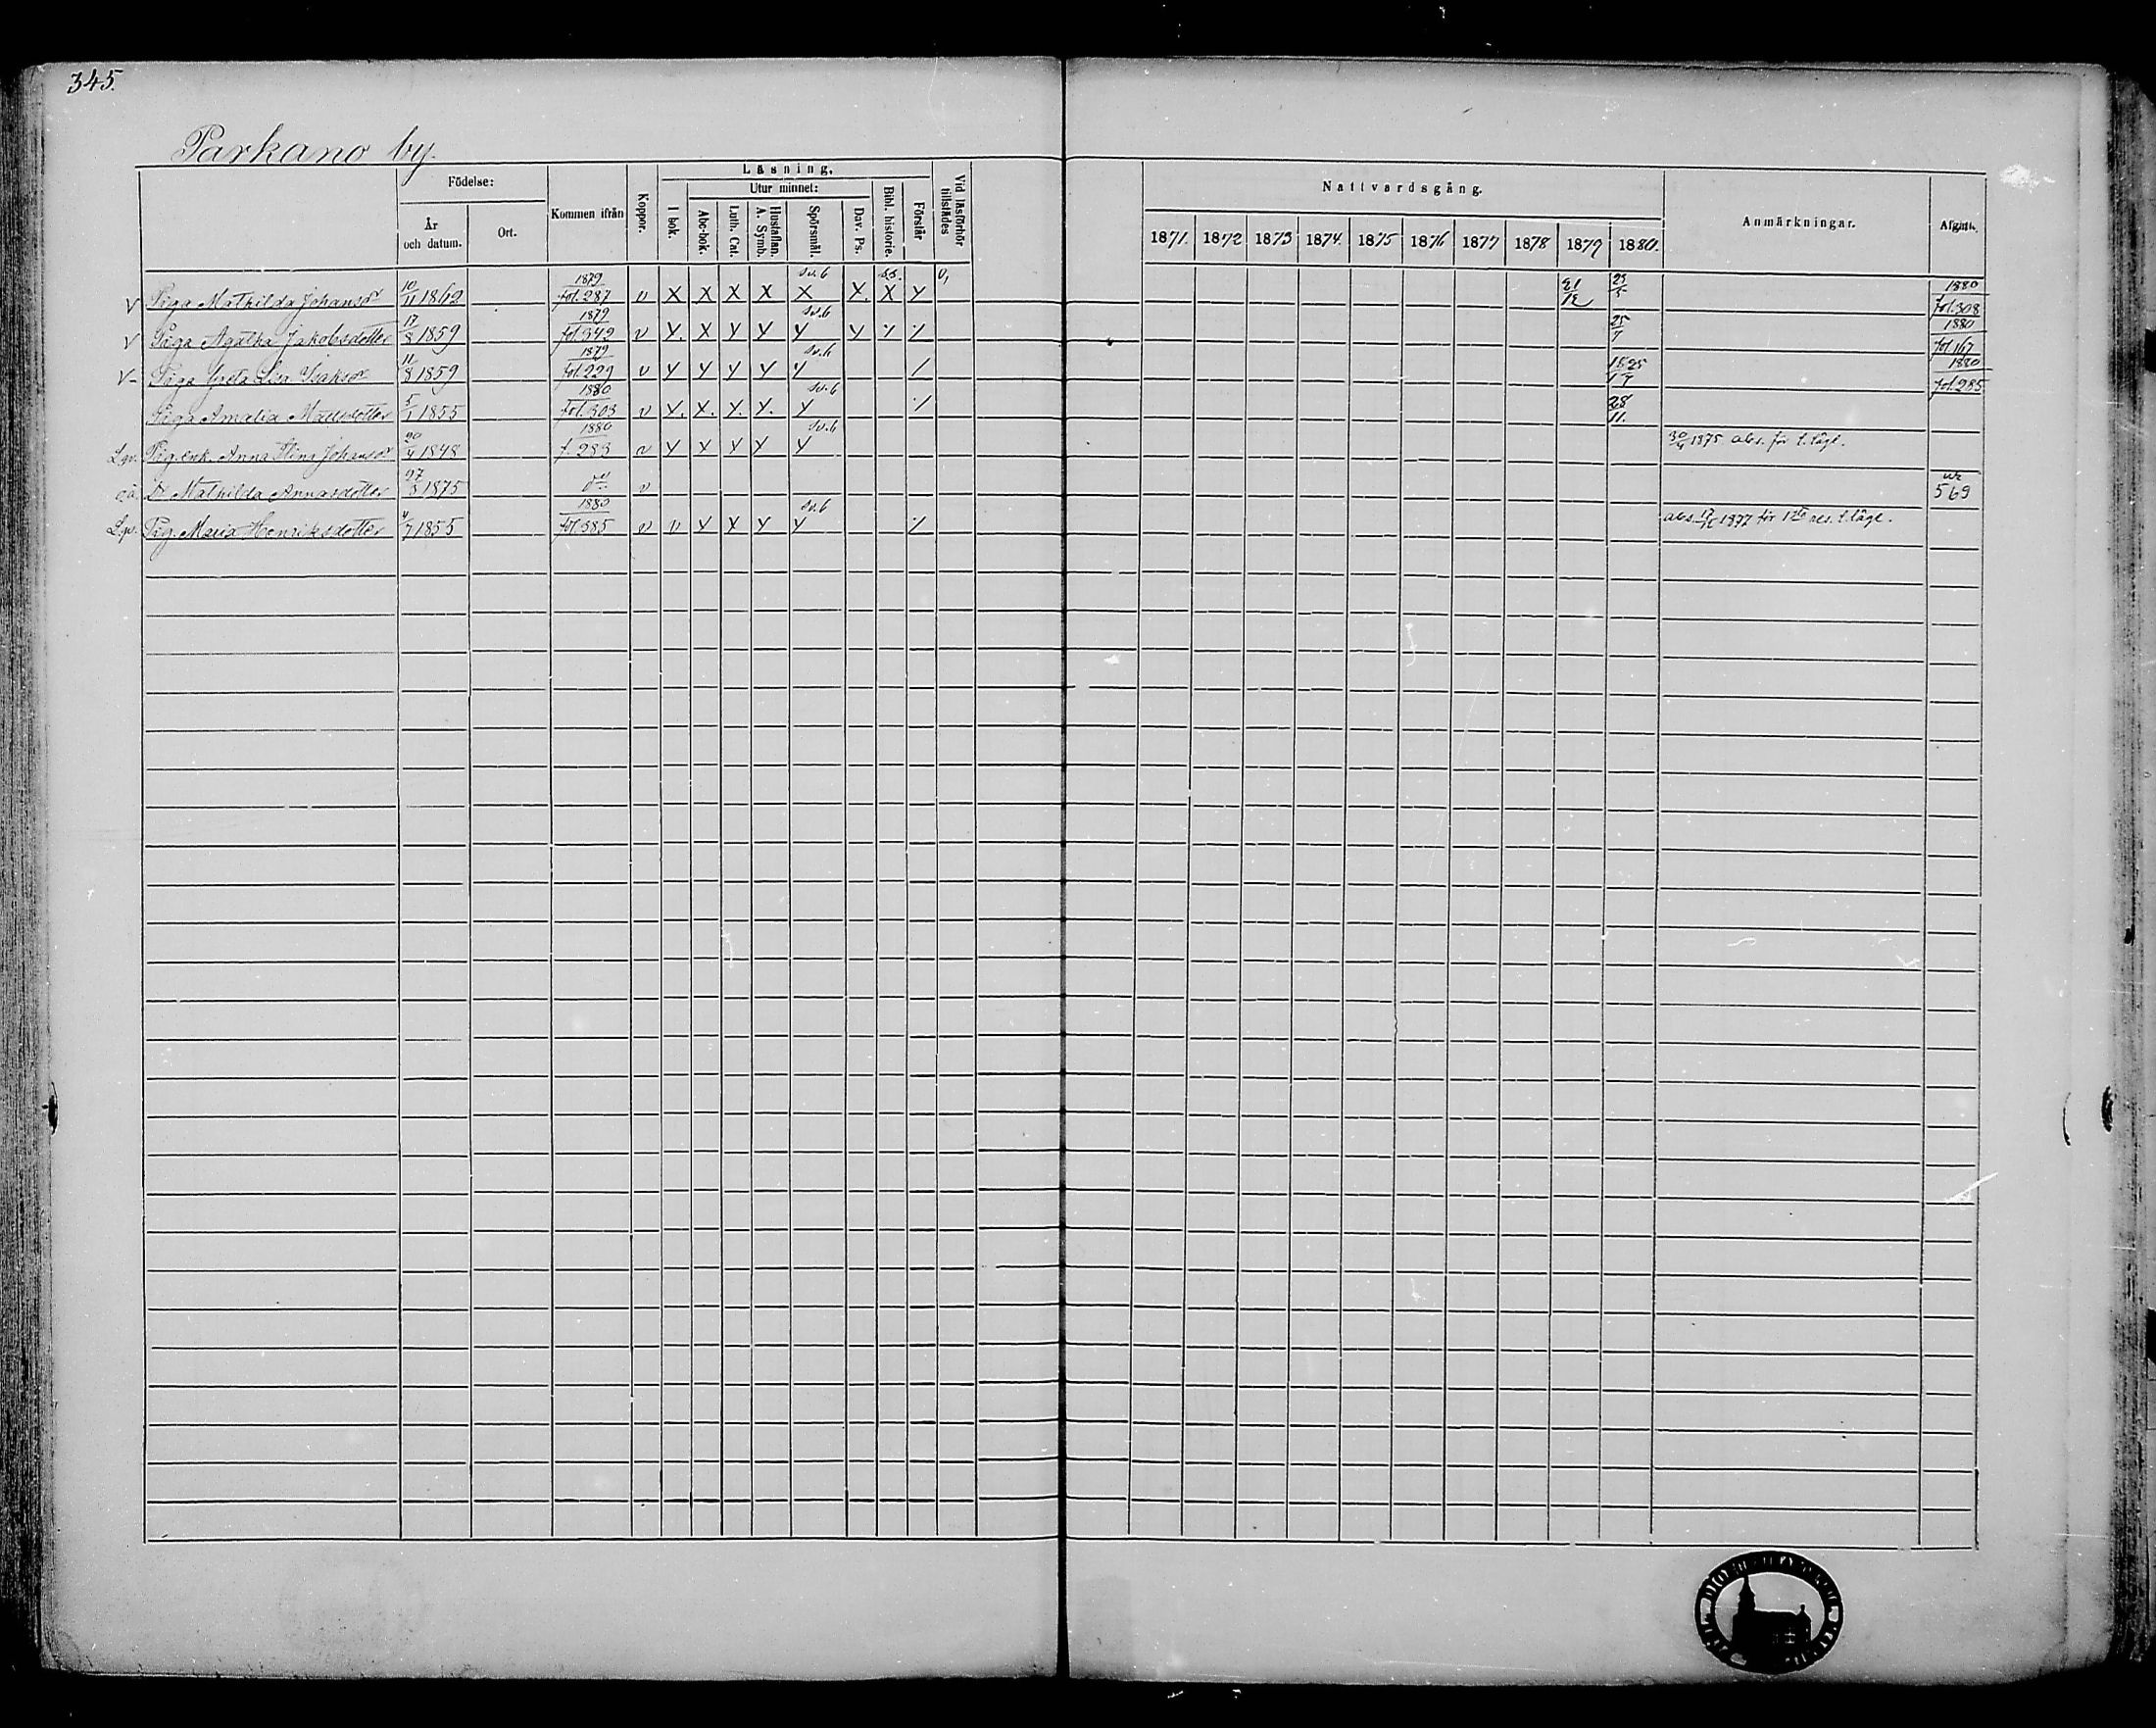 345.
Parkano by.
Födelse:
År och datum.
Ort.
Kommen ifrån
Koppor.
Läsning.
I bok.
Utur minnet:
Abc-bok.
Luth. Cat.
Hustaflan. A. Symb.
Spörsmål.
Dav. Ps.
Bibl. historie.
Förstår
Vid läsförhör tillstädes
Nattvardsgång.
1871. 1872 1873 1874. 1875 1876 1877 1878 1879 1880.
Anmärkningar.
V Piga Mathilda Johansdr 10/11 1862 1879 fol. 287 v X X X X Sv. 6 X X. X Y 23/5 1880 fol. 308
V Piga Agatha Jakobsdotter 17/8 1859 1879 fol. 342 v Y. X Y Y Sv. 6 Y Y 25/7 1880 fol. 167
V- Piga Greta Lisa Isaksdr 11/8 1859 1879 fol. 229 v Y Y Y Y Sv. 6 Y 1880 fol. 285
Piga Amalia Mattsdotter 5/1 1855 1880 fol. 303 v Y. X. Y. Y. Sv. 6 Y 28/11.
Lgv. Pig. enk. Anna Stina Johansdr 1848 1880 f. 283 v Y X Y Y Sv. 6 Y 30/4 1875 abs. för l. lägr.
oä. D. Mathilda Annasdotter 27/3 1875 v 569
Lgv. Pig. Maria Henriksdotter 4/7 1855 1880 fol. 585 v v Y X Y Sv. 6 Y abs. 1877 för l. lägr.